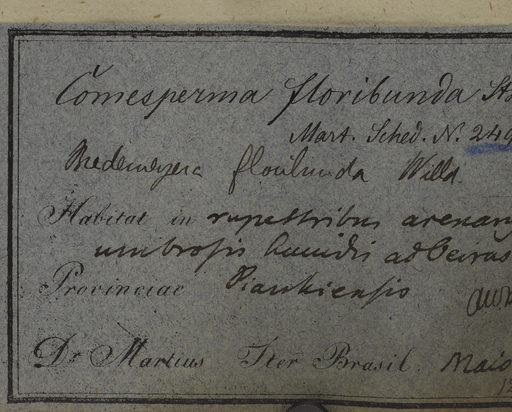 Comesperma floribunda
Mart. Sched. N. 249
Bredemeyera floribunda Willd.
Habitat in rupestribus arenar
umbrosis humidis ad Oeiras
Provinciae Piauhiensis
Dr Martius Iter Brasil. Maio